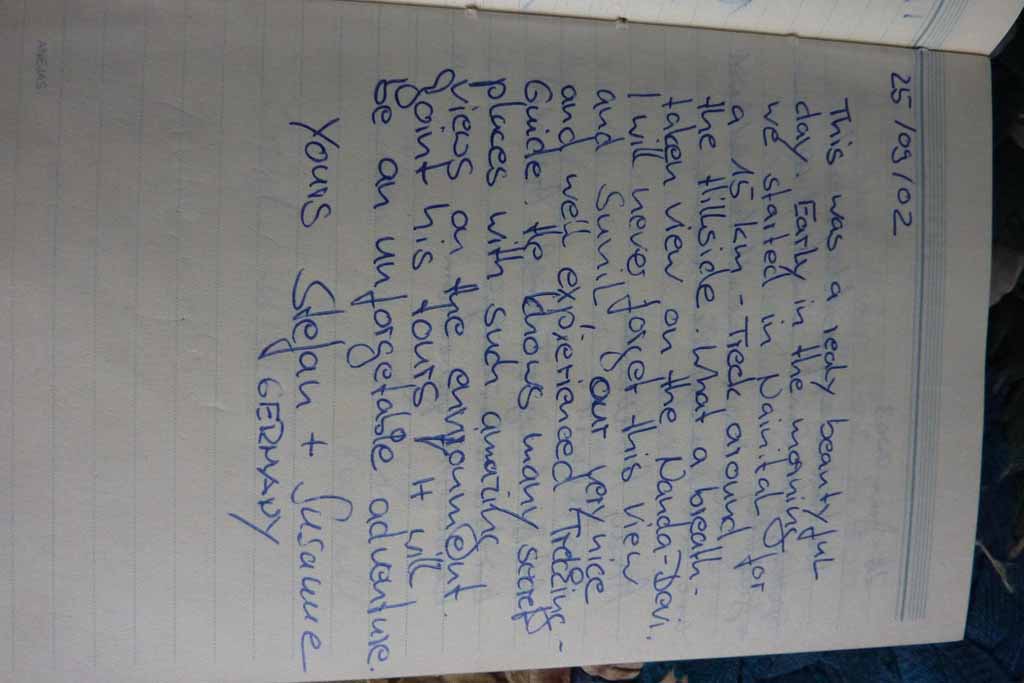 25/09/02
This was a realy beautyful
day. Early in the morning
we started in Nainital for
a 15 km - Treck around
the Hillside. What a breath-
taken view on the Nanda-Davi.
I will never forget this view
and Sunil our very nice
and well expierienced Trecking-
Guide. He knows many secret
places with such amazing
views on the
goint his tours it will
be an unforgetable adventure.
Yours Stefan + Susanne
GERMANY
ANEJAS